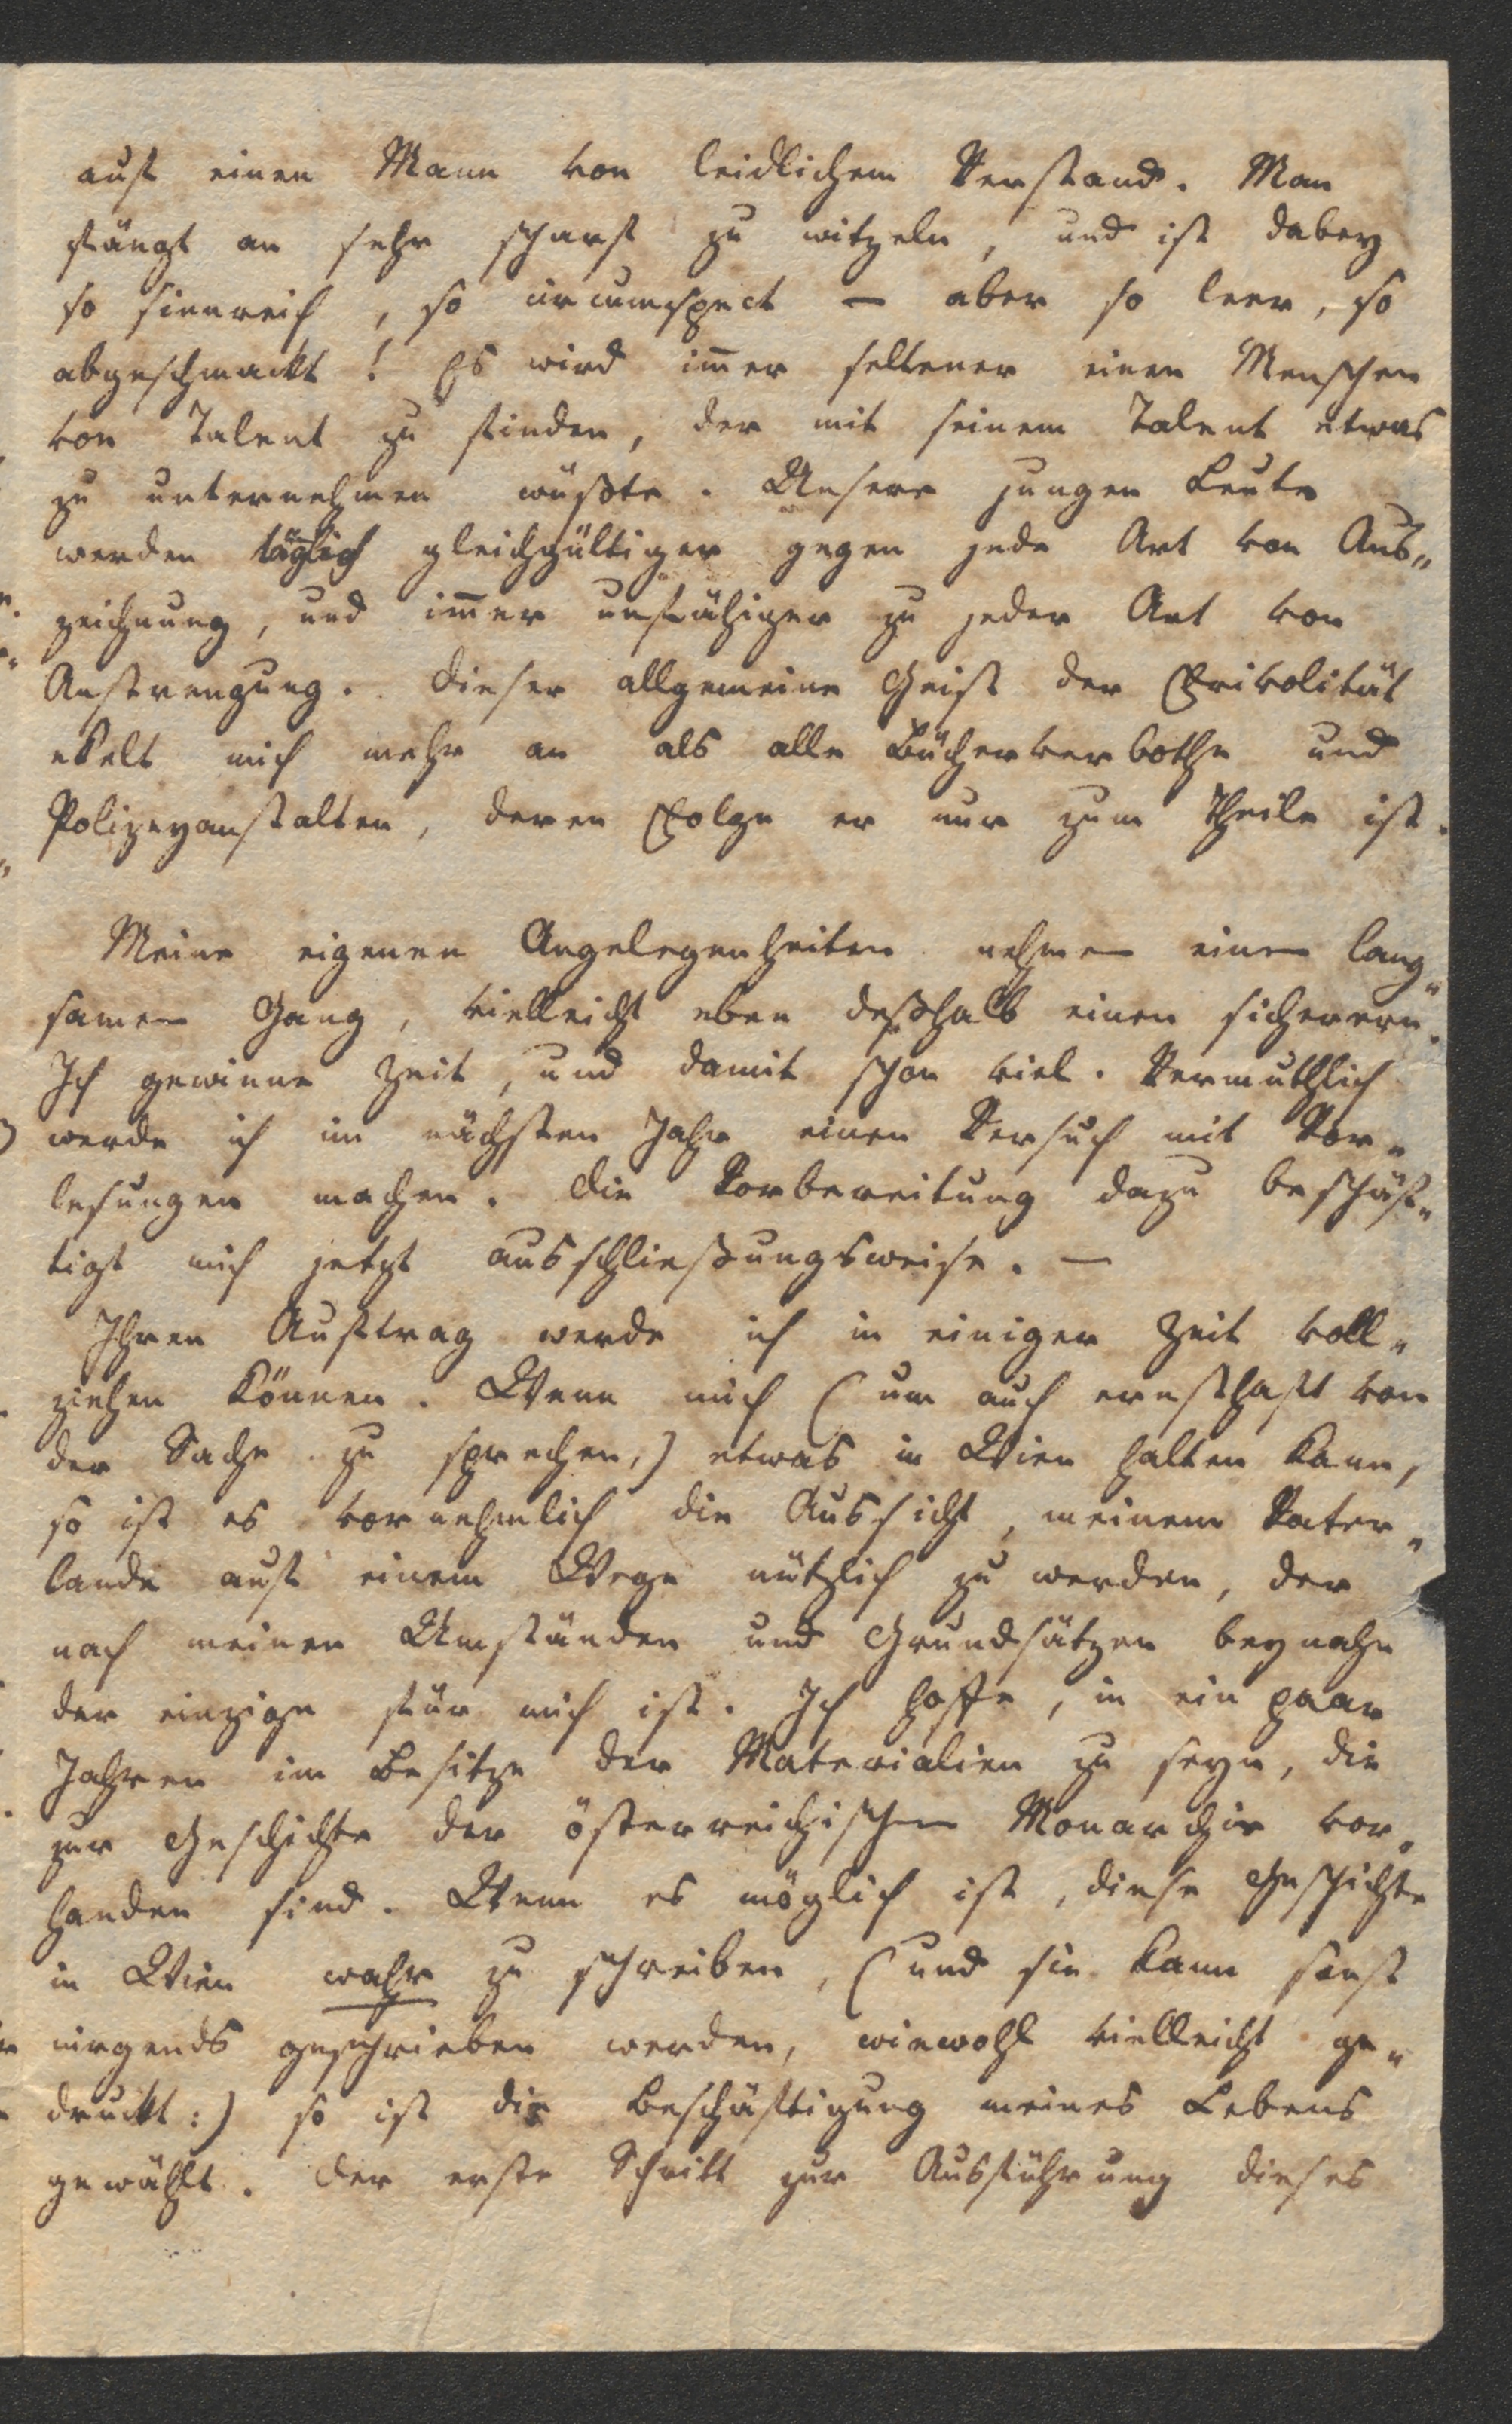 auf einen Mann von leidlichem Verstand. Man
fängt an sehr scharf zu witzeln, und ist dabey
so sinnreich, so circumspect — aber so leer, so
abgeschmackt! Es wird im̄er seltener einen Menschen
von Talent zu finden, der mit seinem Talent etwas
zu unternehmen wüßte. Unsere jungen Leute
werden täglich gleichgültiger gegen jede Art von Aus„
zeichnung, und im̄er unfähiger zu jeder Art von
Anstrengung. Dieser allgemeine Geist der Frivolität
ekelt mich mehr an als alle Bücherverbothe und
Polizeyanstalten, deren Folge er nur zum Theile ist.
Meine eigenen Angelegenheiten nehmen einen lang„
samen Gang, vielleicht eben deßhalb einen sicherern.
Ich gewinne Zeit, und damit schon viel. Vermuthlich
werde ich im nächsten Jahr einen Versuch mit Vor„
lesungen machen. Die Vorbereitung dazu beschäf„
tigt mich jetzt ausschließungsweise. —
Ihren Auftrag werde ich in einiger Zeit voll„
ziehen können. Wenn mich (um auch ernsthaft von
der Sache zu sprechen,) etwas in Wien halten kann,
so ist es vornehmlich die Aussicht, meinem Vater„
lande auf einem Wege nützlich zu werden, der
nach meinen Umständen und Grundsätzen beynahe
der einzige für mich ist. Ich hoffe, in ein paar
Jahren im Besitze der Materialien zu seyn, die
zur Geschichte der österreichischen Monarchie vor„
handen sind. Wenn es möglich ist, diese Geschichte
in Wien wahr zu schreiben, (und sie kann sonst
nirgends geschrieben werden, wiewohl vielleicht ge„
druckt:) so ist die Beschäftigung meines Lebens
gewählt. Der erste Schritt zur Ausführung dieses